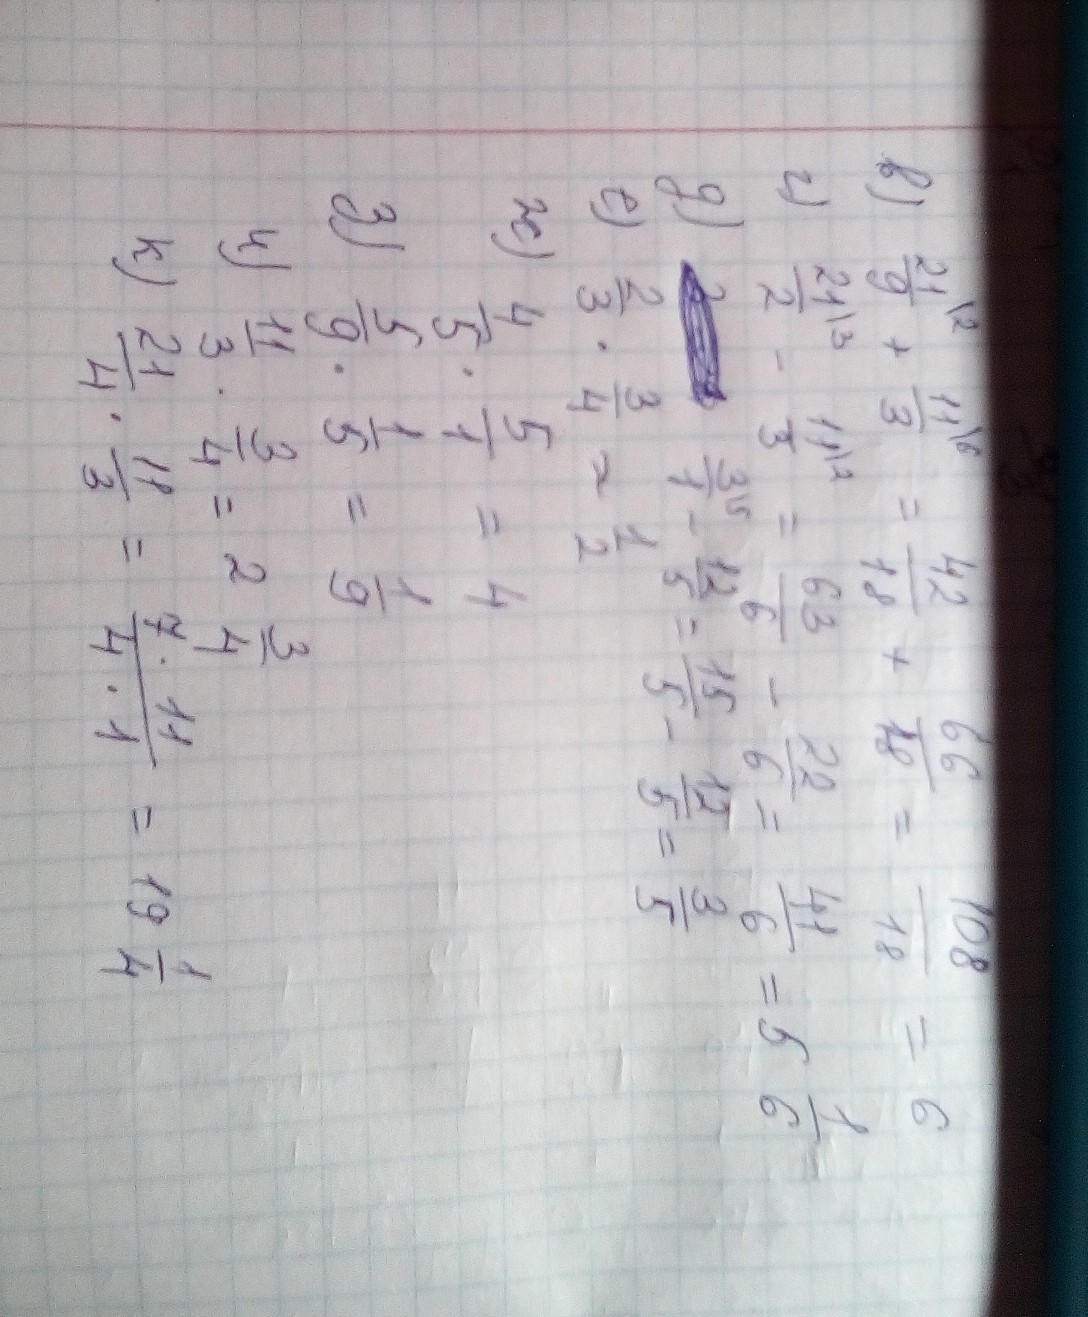 в) 21\2/9 + 11\6/3 = 42/18 + 66/18 = 108/18 = 6
г) 21\3/2 - 11\2/3 = 63/6 - 22/6 = 41/6 = 5 1/6
д) 3\5/1 - 12/5 = 15/5 - 12/5 = 3/5
е) 2/3 · 3/4 ~ 1/2
ж) 4/5 · 5/1 = 4
з) 5/9 · 1/5 = 1/9
и) 11/3 · 3/4 = 2 3/4
к) 21/4 · 11/3 = 7 · 11/4 · 1 = 19 1/4